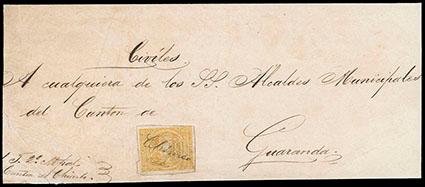 Civiles
A cualquiera de los SS. Alcaldes Municipales
del Canton de
Guaranda.
Chimbo
Canton de Chimbo